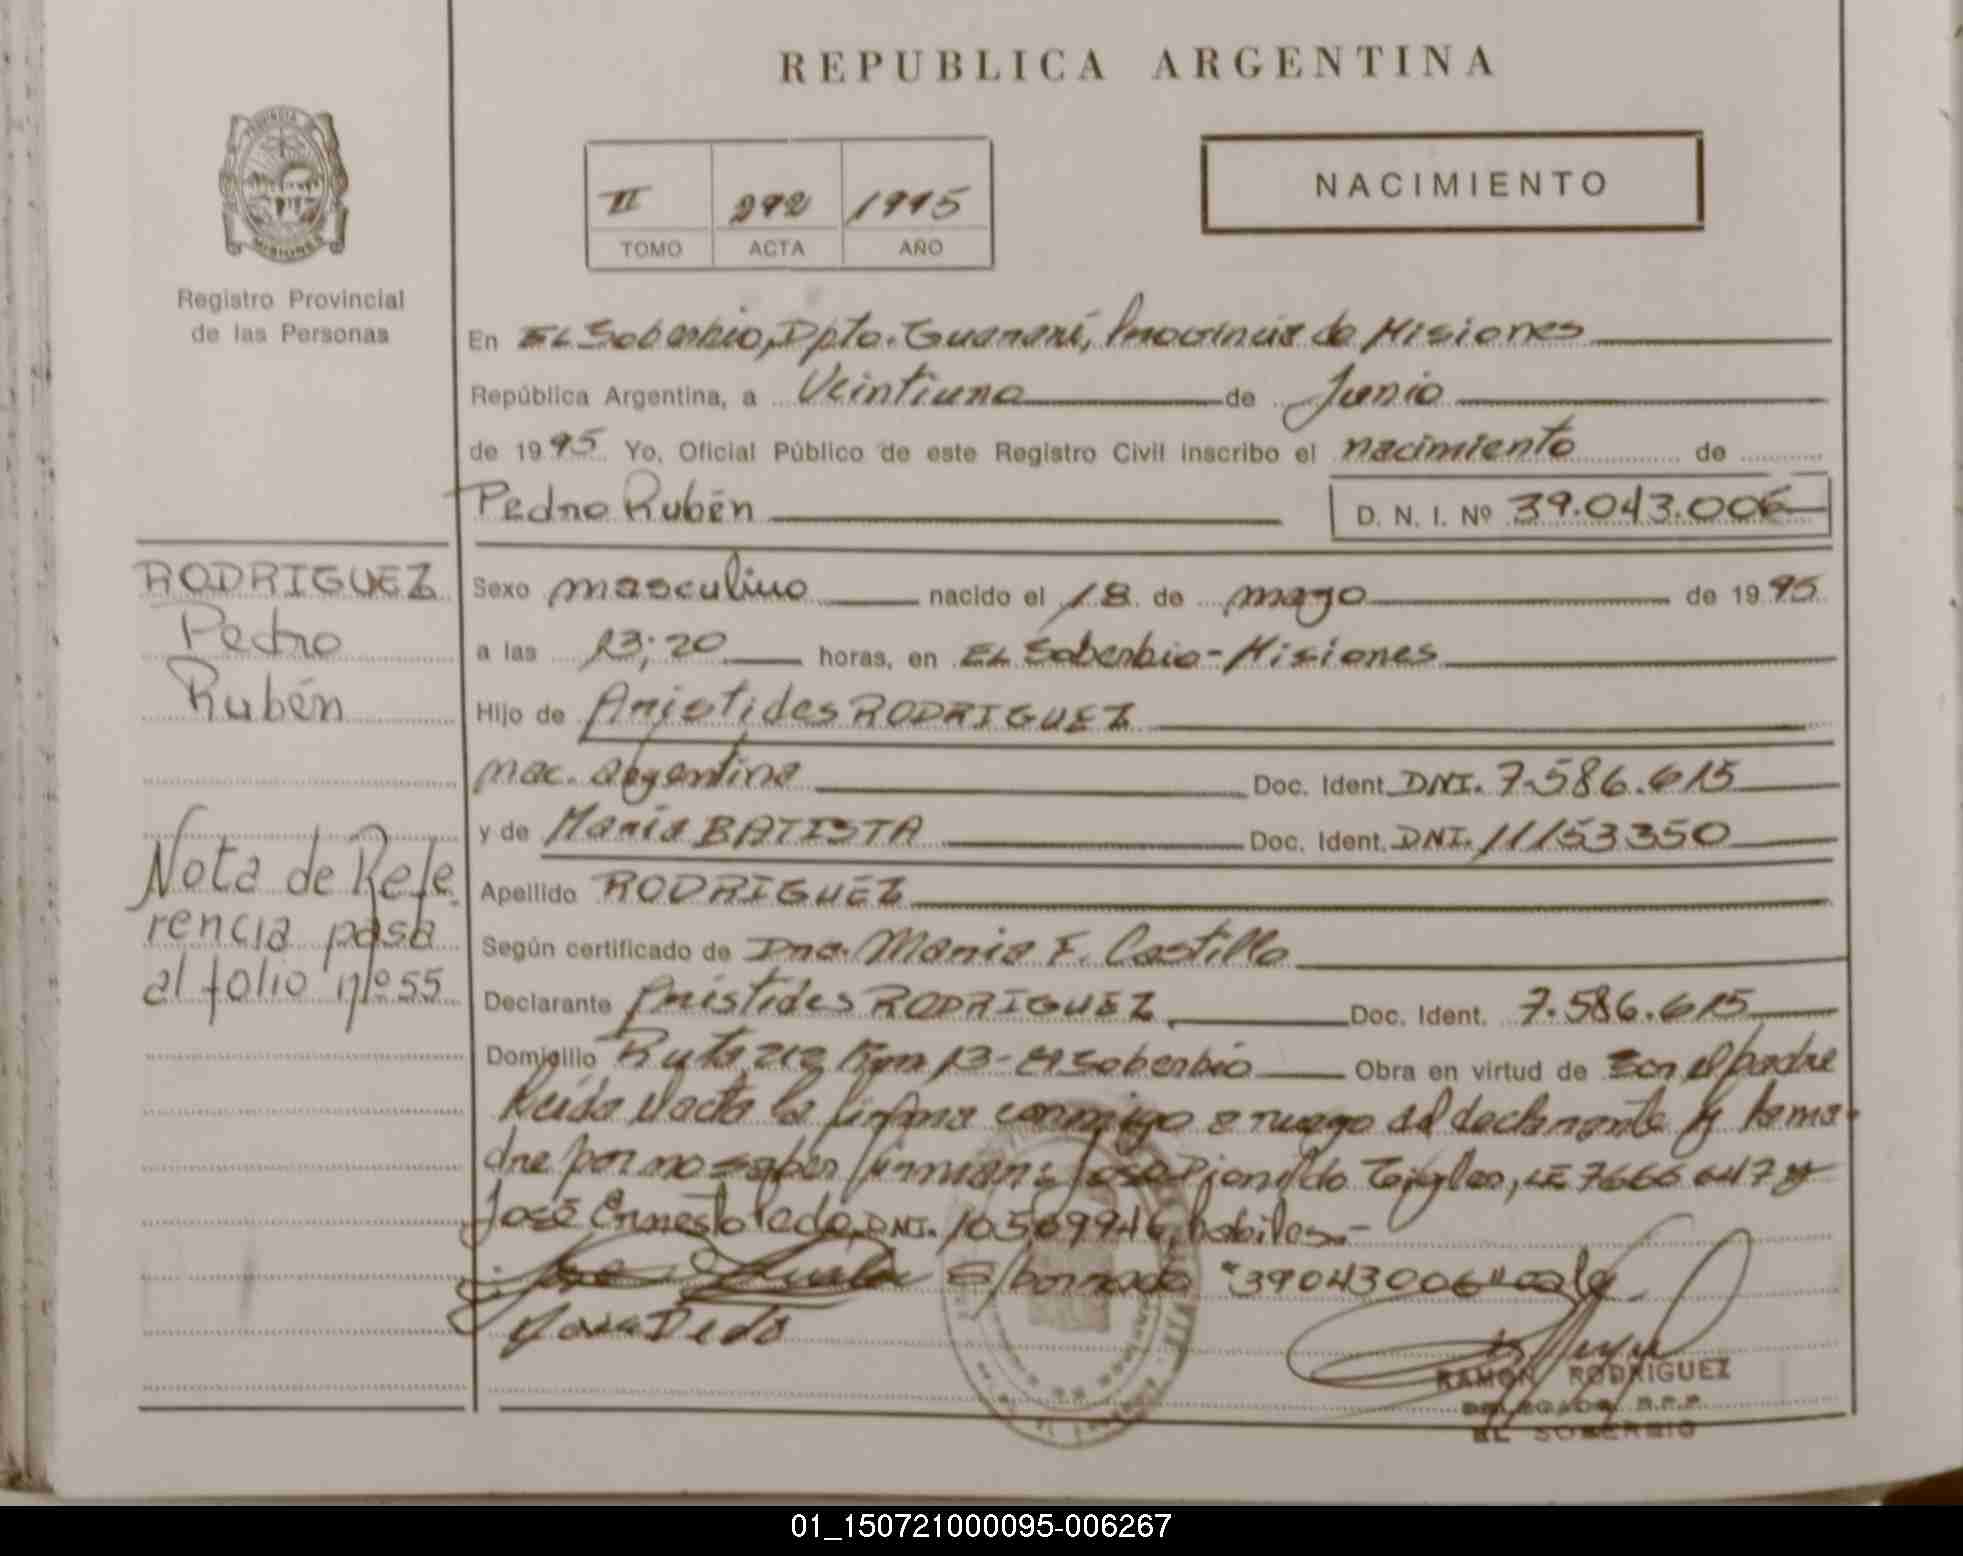 REPUBLICA ARGENTINA
PROVINCIA DE
MISIONES
Registro Provincial
de las Personas
II 292 1995
TOMO ACTA AÑO
NACIMIENTO
En El Soberbio, Dpto. Guaraní, Provincia de Misiones
República Argentina, a Veintiuno de Junio
de 1995 Yo, Oficial Público de este Registro Civil inscribo el nacimiento de
Pedro Rubén D. N. I. Nº 39.043.006
RODRIGUEZ
Pedro
Rubén
Sexo masculino nacido el 18 de mayo de 1995
a las 13;20 horas, en El Soberbio - Misiones
Hijo de Aristides RODRIGUEZ
nac. argentina Doc. Ident. DNI. 7.586.615
y de María BATISTA Doc. Ident. DNI. 11153350
Nota de Refe-
rencia pasa
al folio nº 55
Apellido RODRIGUEZ
Según certificado de Dra. Maria F. Castillo
Declarante Aristides RODRIGUEZ Doc. Ident. 7.586.615
Domicilio Ruta 212 Km 13 - El Soberbio Obra en virtud de Ser el padre
Leída el acta la firma conmigo a ruego del declarante y la ma-
dre por no saber firmar: José LE 7666647 y
José Ernesto DNI. 10.509946, habiles.-
S/borrado "39043006" vale
RAMÓN RODRIGUEZ
DELEGADO R.P.P.
EL SOBERBIO
01_150721000095-006267